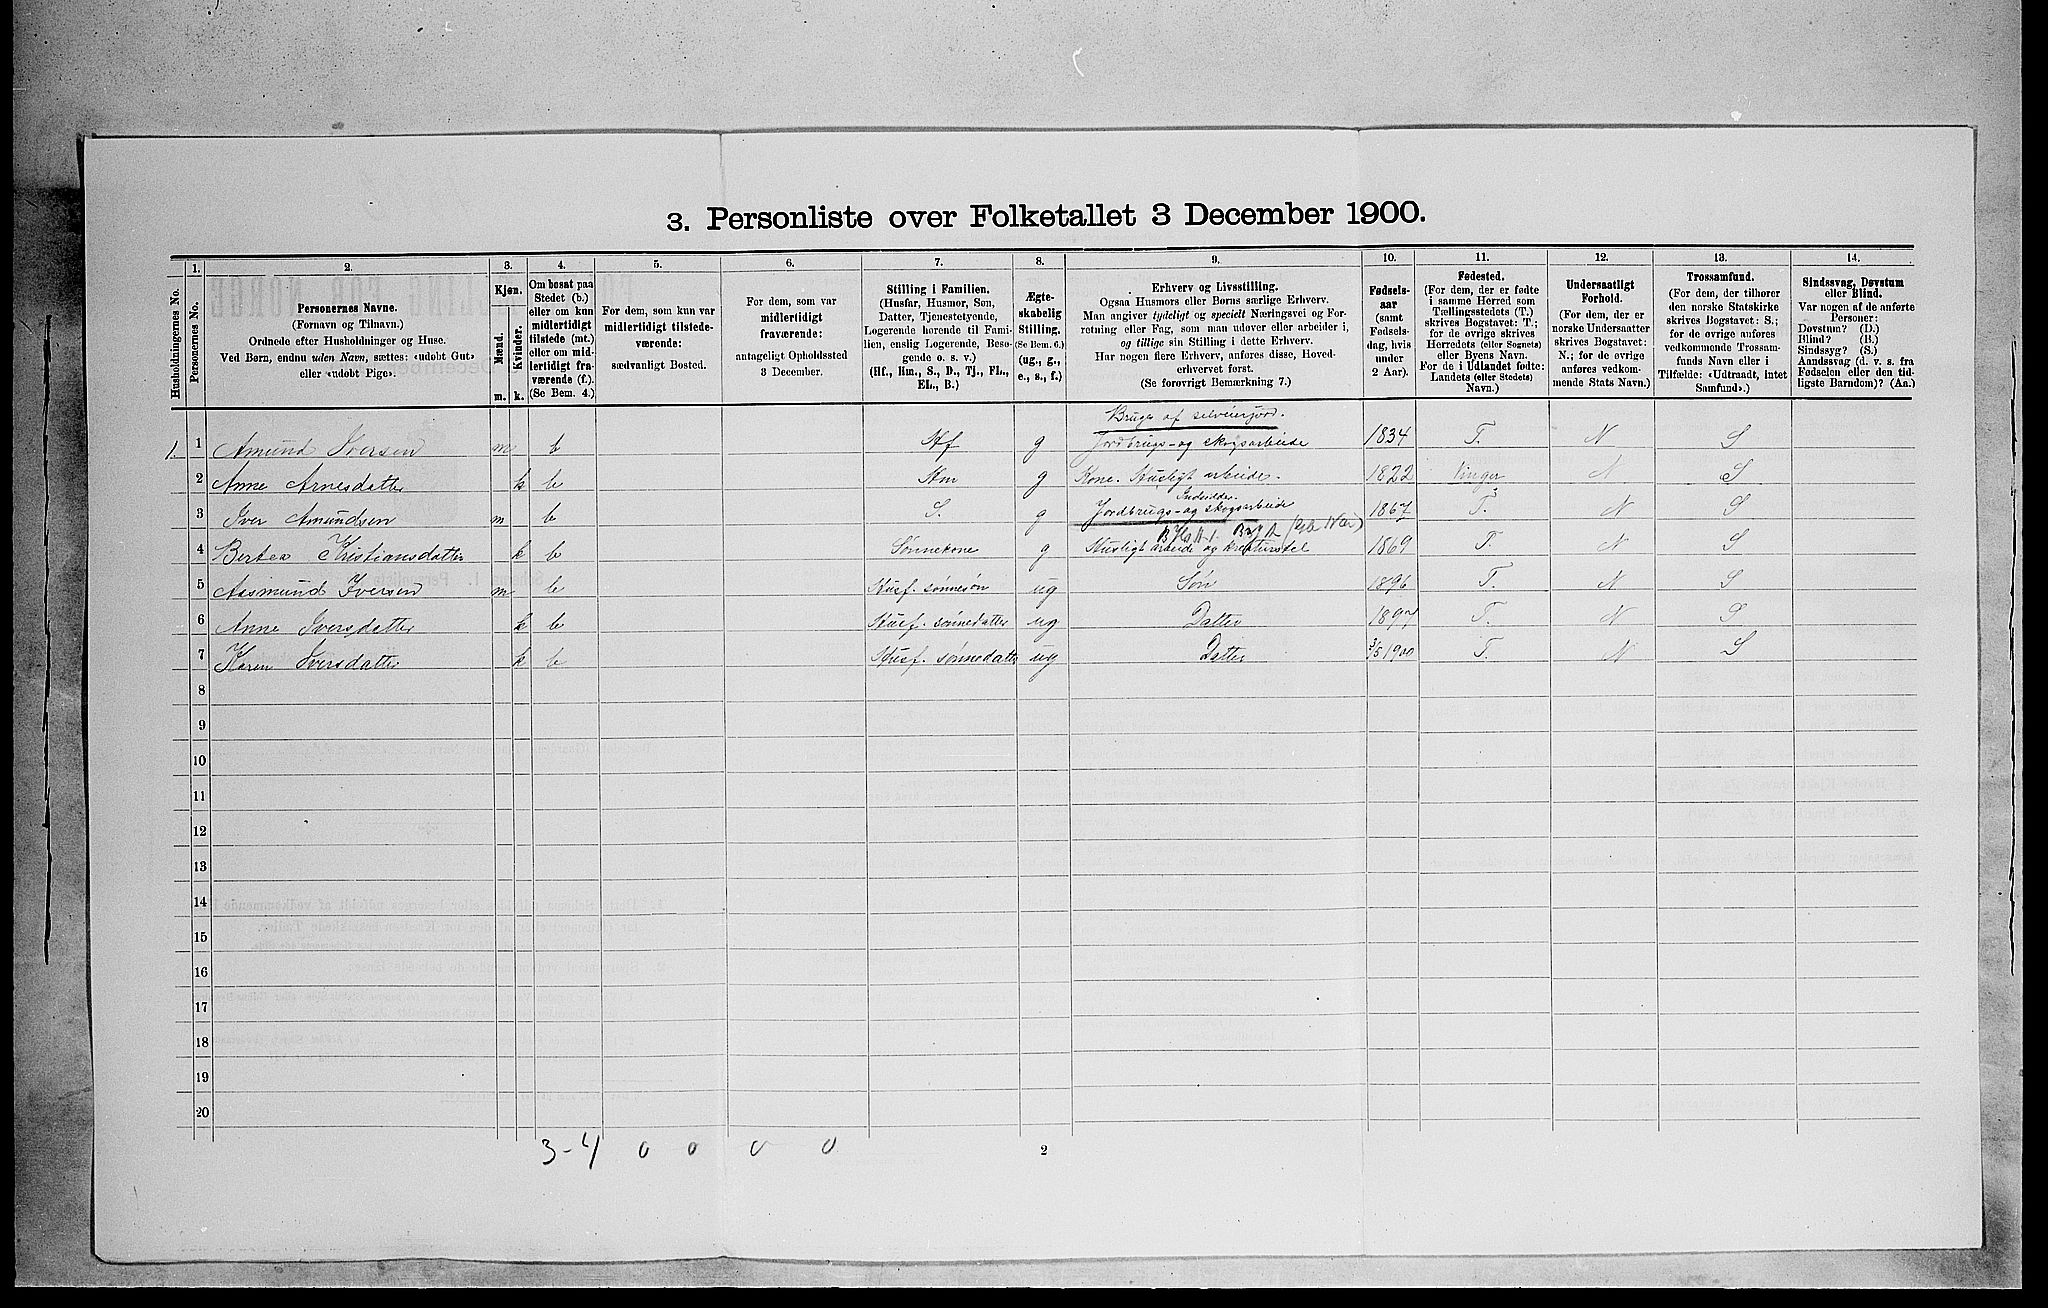 3. Personliste over Folketallet 3 December 1900.
Husholdningernes No.
1.
Personernes No.
2.
Personernes Navne.
(Fornavn og Tilnavn.)
Ordnede efter Husholdninger og Huse.
Ved Børn, endnu uden Navn, sættes: «udøbt Gut»
eller «udøbt Pige».
3.
Kjøn.
Mænd.
Kvinder.
m. k.
4.
Om bosat paa
Stedet (b.)
eller om kun
midlertidigt
tilstede (mt.)
eller om mid-
lertidigt fra-
værende (f.).
(Se Bem. 4.)
5.
For dem, som kun var
midlertidigt tilstede-
værende:
sædvanligt Bosted.
6.
For dem, som var
midlertidigt
fraværende:
antageligt Opholdssted
3 December.
7.
Stilling i Familien.
(Husfar, Husmor, Søn,
Datter, Tjenestetyende,
Logerende hørende til Fami-
lien, enslig Logerende, Besø-
gende o. s. v.)
(Hf., Hm., S., D., Tj., FL.,
EL., B.)
8.
Ægte-
skabelig
Stilling.
(Se Bem. 6.)
(ug., g.,
e., s., f.)
9.
Erhverv og Livsstilling.
Ogsaa Husmors eller Børns særlige Erhverv.
Man angiver tydeligt og specielt Næringsvei og For-
retning eller Fag, som man udøver eller arbeider i,
og tillige sin Stilling i dette Erhverv.
Har nogen flere Erhverv, anføres disse, Hoved-
erhvervet først.
(Se forøvrigt Bemærkning 7.)
10.
Fødsels-
aar
(samt
Fødsels-
dag, hvis
under
2 Aar).
11.
Fødested.
(For dem, der er fødte
i samme Herred som
Tællingsstedets (T.)
skrives Bogstavet: T.;
for de øvrige skrives
Herredets (eller Sognets)
eller Byens Navn.
For de i Udlandet fødte:
Landets (eller Stedets)
Navn.)
12.
Undersaatligt
Forhold.
(For dem, der er
norske Undersaatter
skrives Bogstavet:
N.; for de øvrige
anføres vedkom-
mende Stats Navn.)
13.
Trossamfund.
(For dem, der tilhører
den norske Statskirke
skrives Bogstavet: S.;
for de øvrige anføres
vedkommende Trossam-
funds Navn eller i
Tilfælde: «Udtraadt, intet
Samfund».)
14.
Sindssvag, Døvstum
eller Blind.
Var nogen af de anførte
Personer:
Døvstum? (D.)
Blind? (B.)
Sindssyg? (S.)
Aandssvag (d. v. s. fra
Fødselen eller den tid-
ligste Barndom)? (Aa.)
Bruger af selveierjord.
1. 1 Amund Iversen m b Hf g Jordbrugs- og skogsarbeide 1834 T. N S
2 Anne Arnesdatter k b Hm g Kone. Husligt arbeide. 1822 Vinger N S
Inderidder.
3 Iver Amundsen m b S. g Jordbrugs- og skogsarbeide 1867 T. N S
4 Bertea Kristiansdatter k b Sønnekone g Husligt arbeide og kreaturstel 1869 T. N S
5 Aasmund Iversen m b Husf. sønnesøn ug Søn 1896 T. N S
6 Anne Iversdatter k b Husf. sønnedatter ug Datter 1897 T. N S
7 Karen Iversdatter k b Husf. sønnedatter ug Datter 3/5 1900 T. N S
8
9
10
11
12
13
14
15
16
17
18
19
20
3-4 0 0 0 0
2